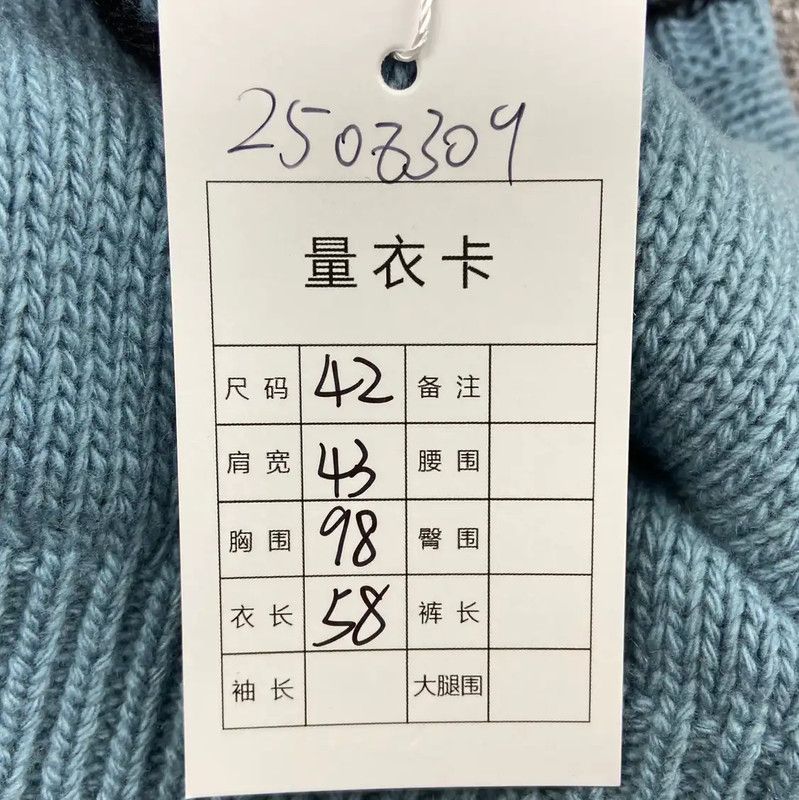 2508309
量衣卡
尺码 42 备注
肩宽 43 腰围
胸围 98 臀围
衣长 58 裤长
袖长 大腿围